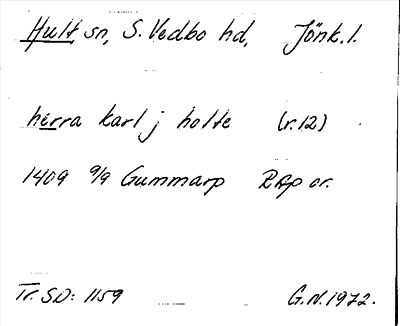 Hult sn, S. Vedbo hd, Jönk. l.
herra karl j holte (r. 12)
1409 9/9 Gummarp RAp or.
Tr. SD: 1159 G.N. 1972.